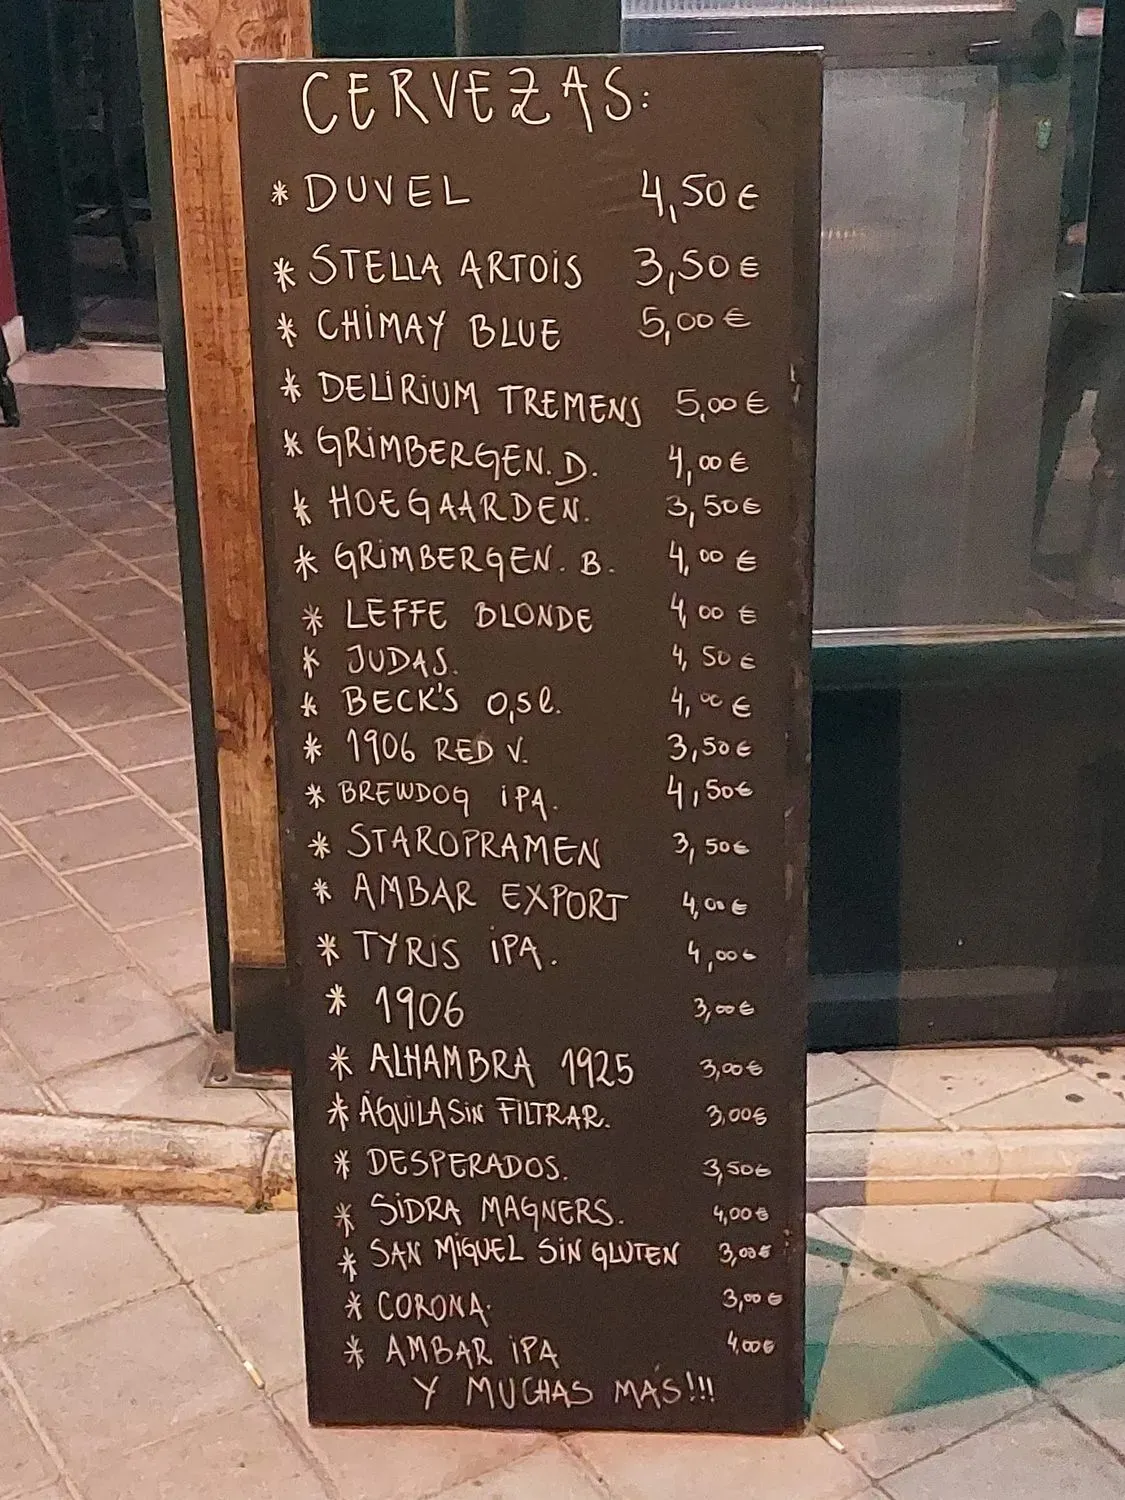 CERVEZAS:
* DUVEL 4,50 €
* STELLA ARTOIS 3,50 €
* CHIMAY BLUE 5,00 €
* DELIRIUM TREMENS 5,00 €
* GRIMBERGEN. D. 4,00 €
* HOEGAARDEN. 3,50 €
* GRIMBERGEN. B. 4,00 €
* LEFFE BLONDE 4,00 €
* JUDAS. 4,50 €
* BECK'S 0,5 l. 4,00 €
* 1906 RED V. 3,50 €
* BREWDOG IPA. 4,50 €
* STAROPRAMEN 3,50 €
* AMBAR EXPORT 4,00 €
* TYRIS IPA. 4,00 €
* 1906 3,00 €
* ALHAMBRA 1925 3,00 €
* ÁGUILA SIN FILTRAR. 3,00 €
* DESPERADOS. 3,50 €
* SIDRA MAGNERS. 4,00 €
* SAN MIGUEL SIN GLUTEN 3,00 €
* CORONA. 3,00 €
* AMBAR IPA 4,00 €
Y MUCHAS MÁS!!!